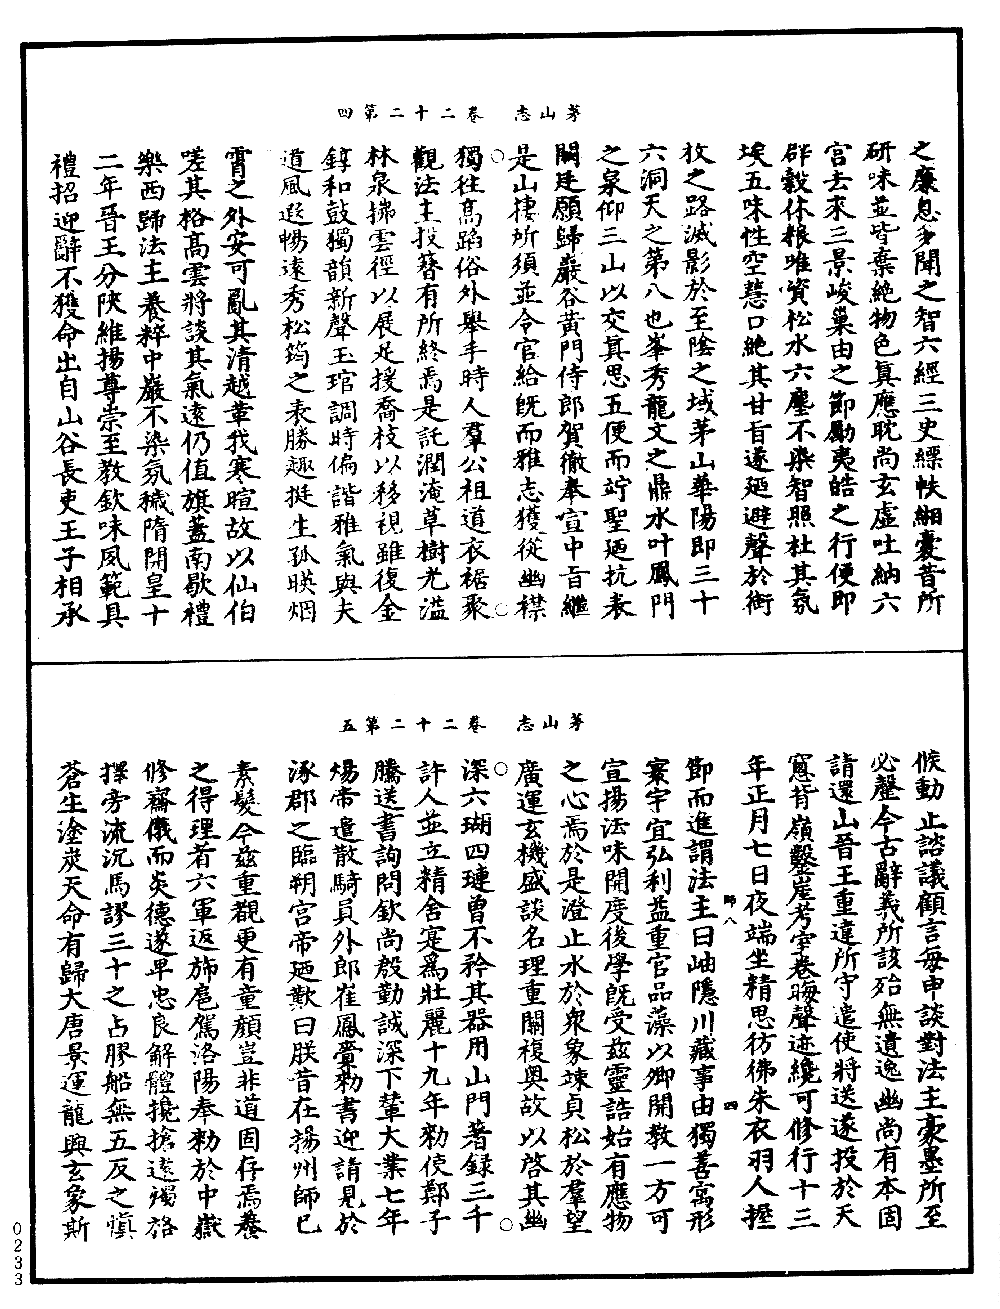 茅山志　卷二十二第四
之廉息多聞之智六經三史縹帙緗囊昔所
研味並皆棄絶物色真應耽尚玄虛吐納六
宮去來三景峻巢由之節勵夷皓之行便即
辟穀休粮唯資松水六塵不染智照杜其氛
埃五味性空慧口絶其甘旨遂廼避聲於衝
技之路滅影於至陰之域茅山華陽即三十
六洞天之第八也峯秀龍文之鼎水叶鳳門
之泉仰三山以交真思五便而竚聖廼抗表
闕廷願歸巖谷黄門侍郎賀徹奉宣中旨繼
是山棲所須並令官給旣而雅志獲從幽襟
獨往高蹈俗外舉手時人羣公祖道衣裾聚
觀法主投簪有所終焉是託澗淹草樹光溢
林泉揣雲徑以展足援喬枝以移視雖復金
錞和鼓獨韻新聲玉琯調時偏諧雅氣與夫
道風遐暢遠秀松筠之表勝趣挺生孤暎烟
霄之外安可亂其清越革我寒暄故以仙伯
嗟其格高雲將談其氣遠仍值旗蓋南歇禮
樂西歸法主養粹中巖不染氛穢隋開皇十
二年晉王分陜維揚尊崇至教欽味風範具
禮招迎辭不獲命出自山谷長吏王子相承
茅山志　卷二十二第五
候動止諮議顧言每申談對法主豪墨所至
必罄今古辭義所該殆無遺逸幽尚有本固
請還山晉王重違所守遣使將送遂投於天
窻背嶺鑿崖考室卷晦聲迹纔可修行十三
年正月七日夜端坐精思彷彿朱衣羽人握
節而進謂法主曰岫隱川藏事由獨善寓形
寰宇宜弘利益重官品藻以卿開教一方可
宣揚法味開度後學旣受兹靈誥始有應物
之心焉於是澄止水於衆象竦貞松於羣望
廣運玄機盛談名理重關複奥故以啓其幽
深六瑚四璉曽不矜其器用山門著録三千
許人並立精舍寔爲壯麗十九年勑使鄭子
騰送書詢問欽尚殷勤誠深下輦大業七年
煬帝遣散騎員外郎崔鳳賫勑書迎請見於
涿郡之臨朔宮帝廼歎曰朕昔在揚州師已
素髮今兹重覩更有童顔豈非道固存焉養
之得理者六軍返斾扈駕洛陽奉勑於中嶽
修齋儀而炎德遂卑忠良解體攙搶遠燭袼
擇旁流沉馬謬三十之占膠船無五反之慎
蒼生塗炭天命有歸大唐景運龍興玄象斯
師八　四
0233